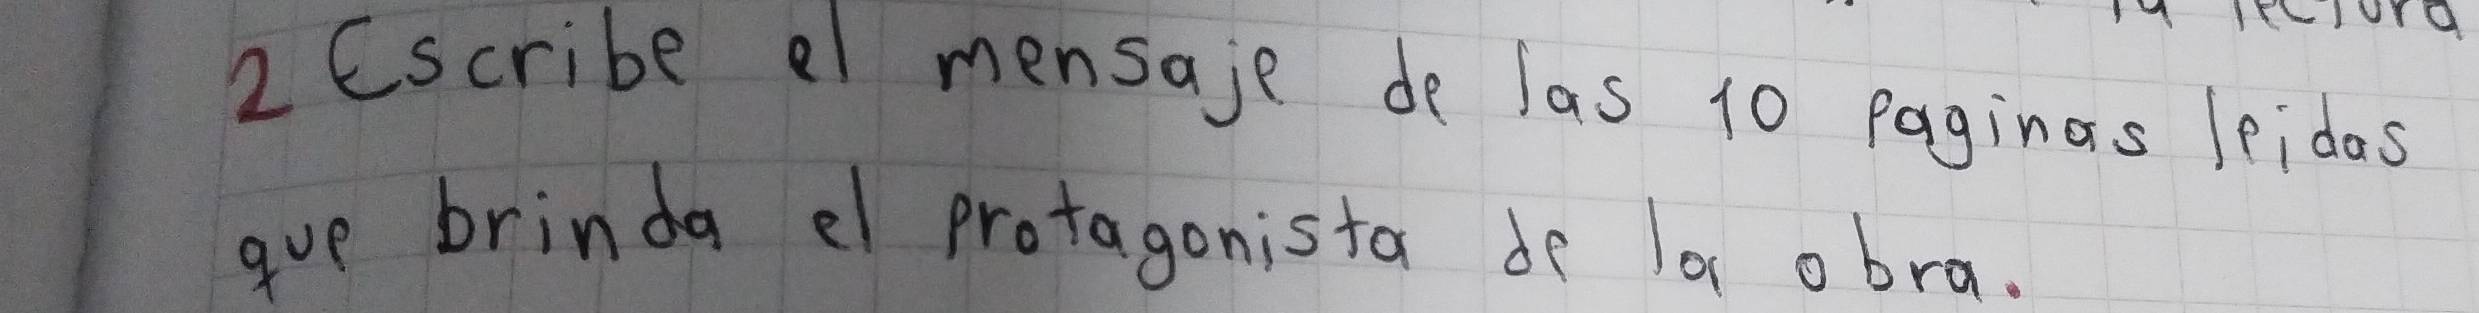 la lectura
2 Escribe el mensaje de las 10 paginas leidas
que brinda el protagonista de la obra.